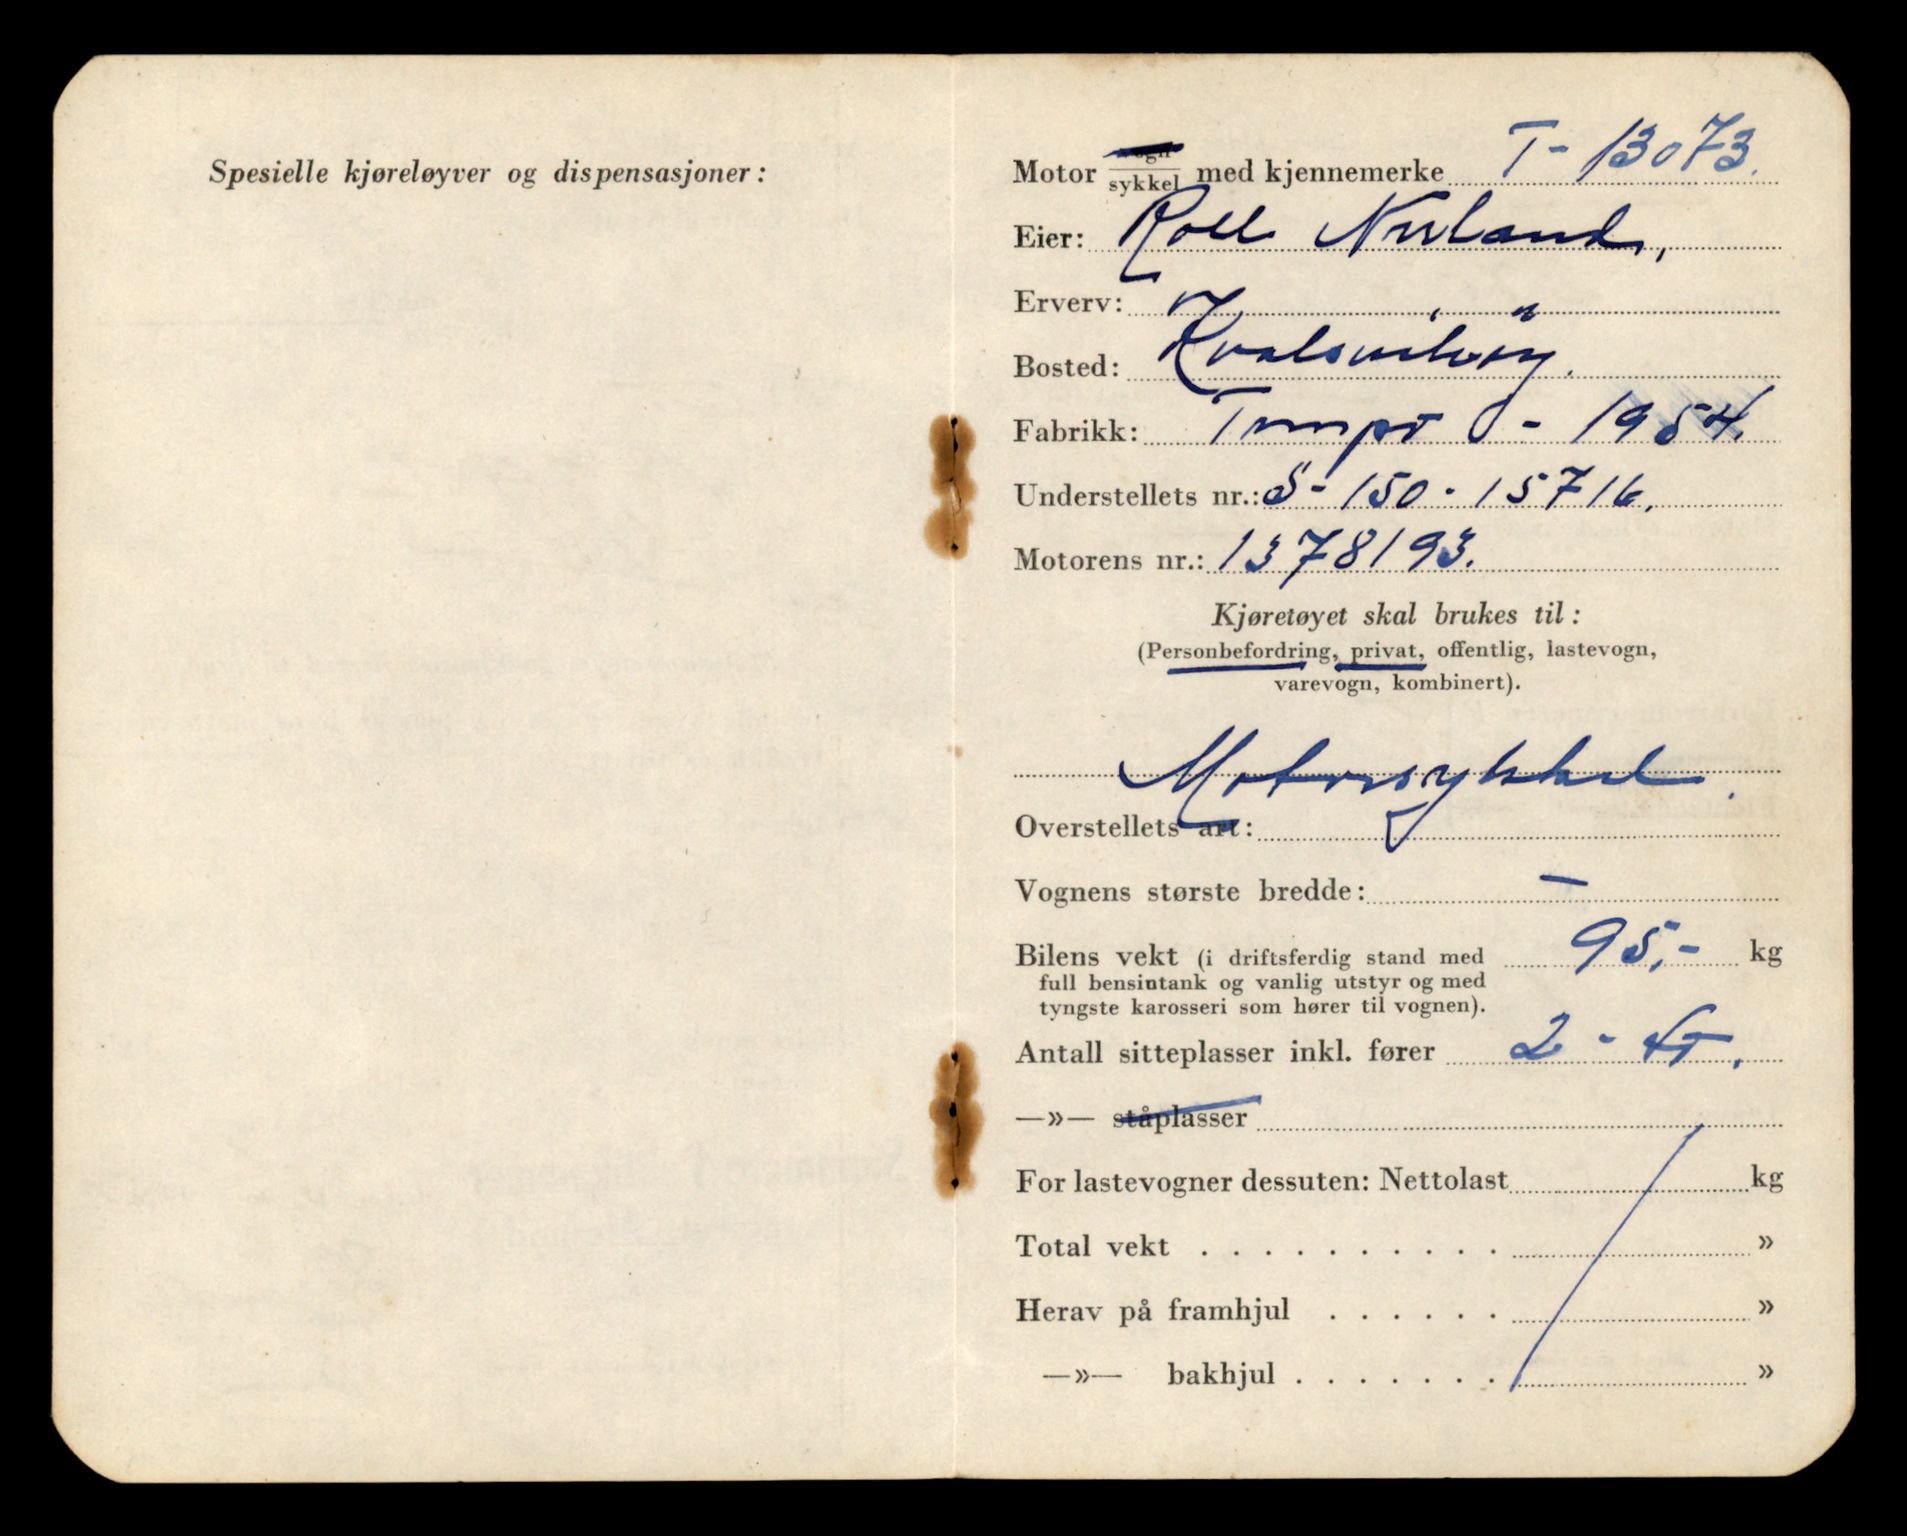 Spesielle kjøreløyver og dispensasjoner:
Motor vogn/sykkel med kjennemerke T-13073.
Eier: Nerland,
Erverv:
Bosted: Kvalsvikvåg.
Fabrikk: Tempo - 1954.
Understellets nr.: S-150-15716.
Motorens nr.: 1378193.
Kjøretøyet skal brukes til:
(Personbefordring, privat, offentlig, lastevogn,
varevogn, kombinert).
Motorsykkel.
Overstellets art:
Vognens største bredde: —
Bilens vekt (i driftsferdig stand med 95,- kg
full bensintank og vanlig utstyr og med
tyngste karosseri som hører til vognen).
Antall sitteplasser inkl. fører 2 -
—»— ståplasser
For lastevogner dessuten: Nettolast kg
Total vekt . . . . . . . . . . »
Herav på framhjul . . . . . . »
—»— bakhjul . . . . . . . »